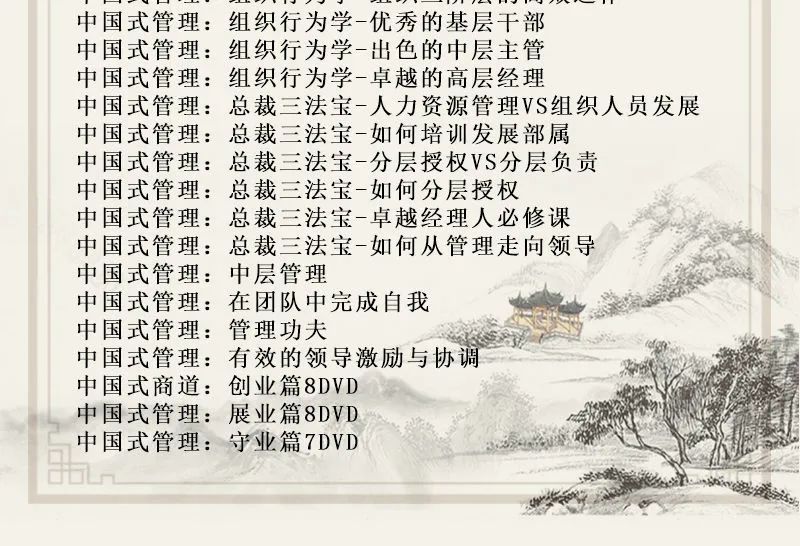 中国式管理：组织行为学-优秀的基层干部
中国式管理：组织行为学-出色的中层主管
中国式管理：组织行为学-卓越的高层经理
中国式管理：总裁三法宝-人力资源管理VS组织人员发展
中国式管理：总裁三法宝-如何培训发展部属
中国式管理：总裁三法宝-分层授权VS分层负责
中国式管理：总裁三法宝-如何分层授权
中国式管理：总裁三法宝-卓越经理人必修课
中国式管理：总裁三法宝-如何从管理走向领导
中国式管理：中层管理
中国式管理：在团队中完成自我
中国式管理：管理功夫
中国式管理：有效的领导激励与协调
中国式商道：创业篇8DVD
中国式管理：展业篇8DVD
中国式管理：守业篇7DVD